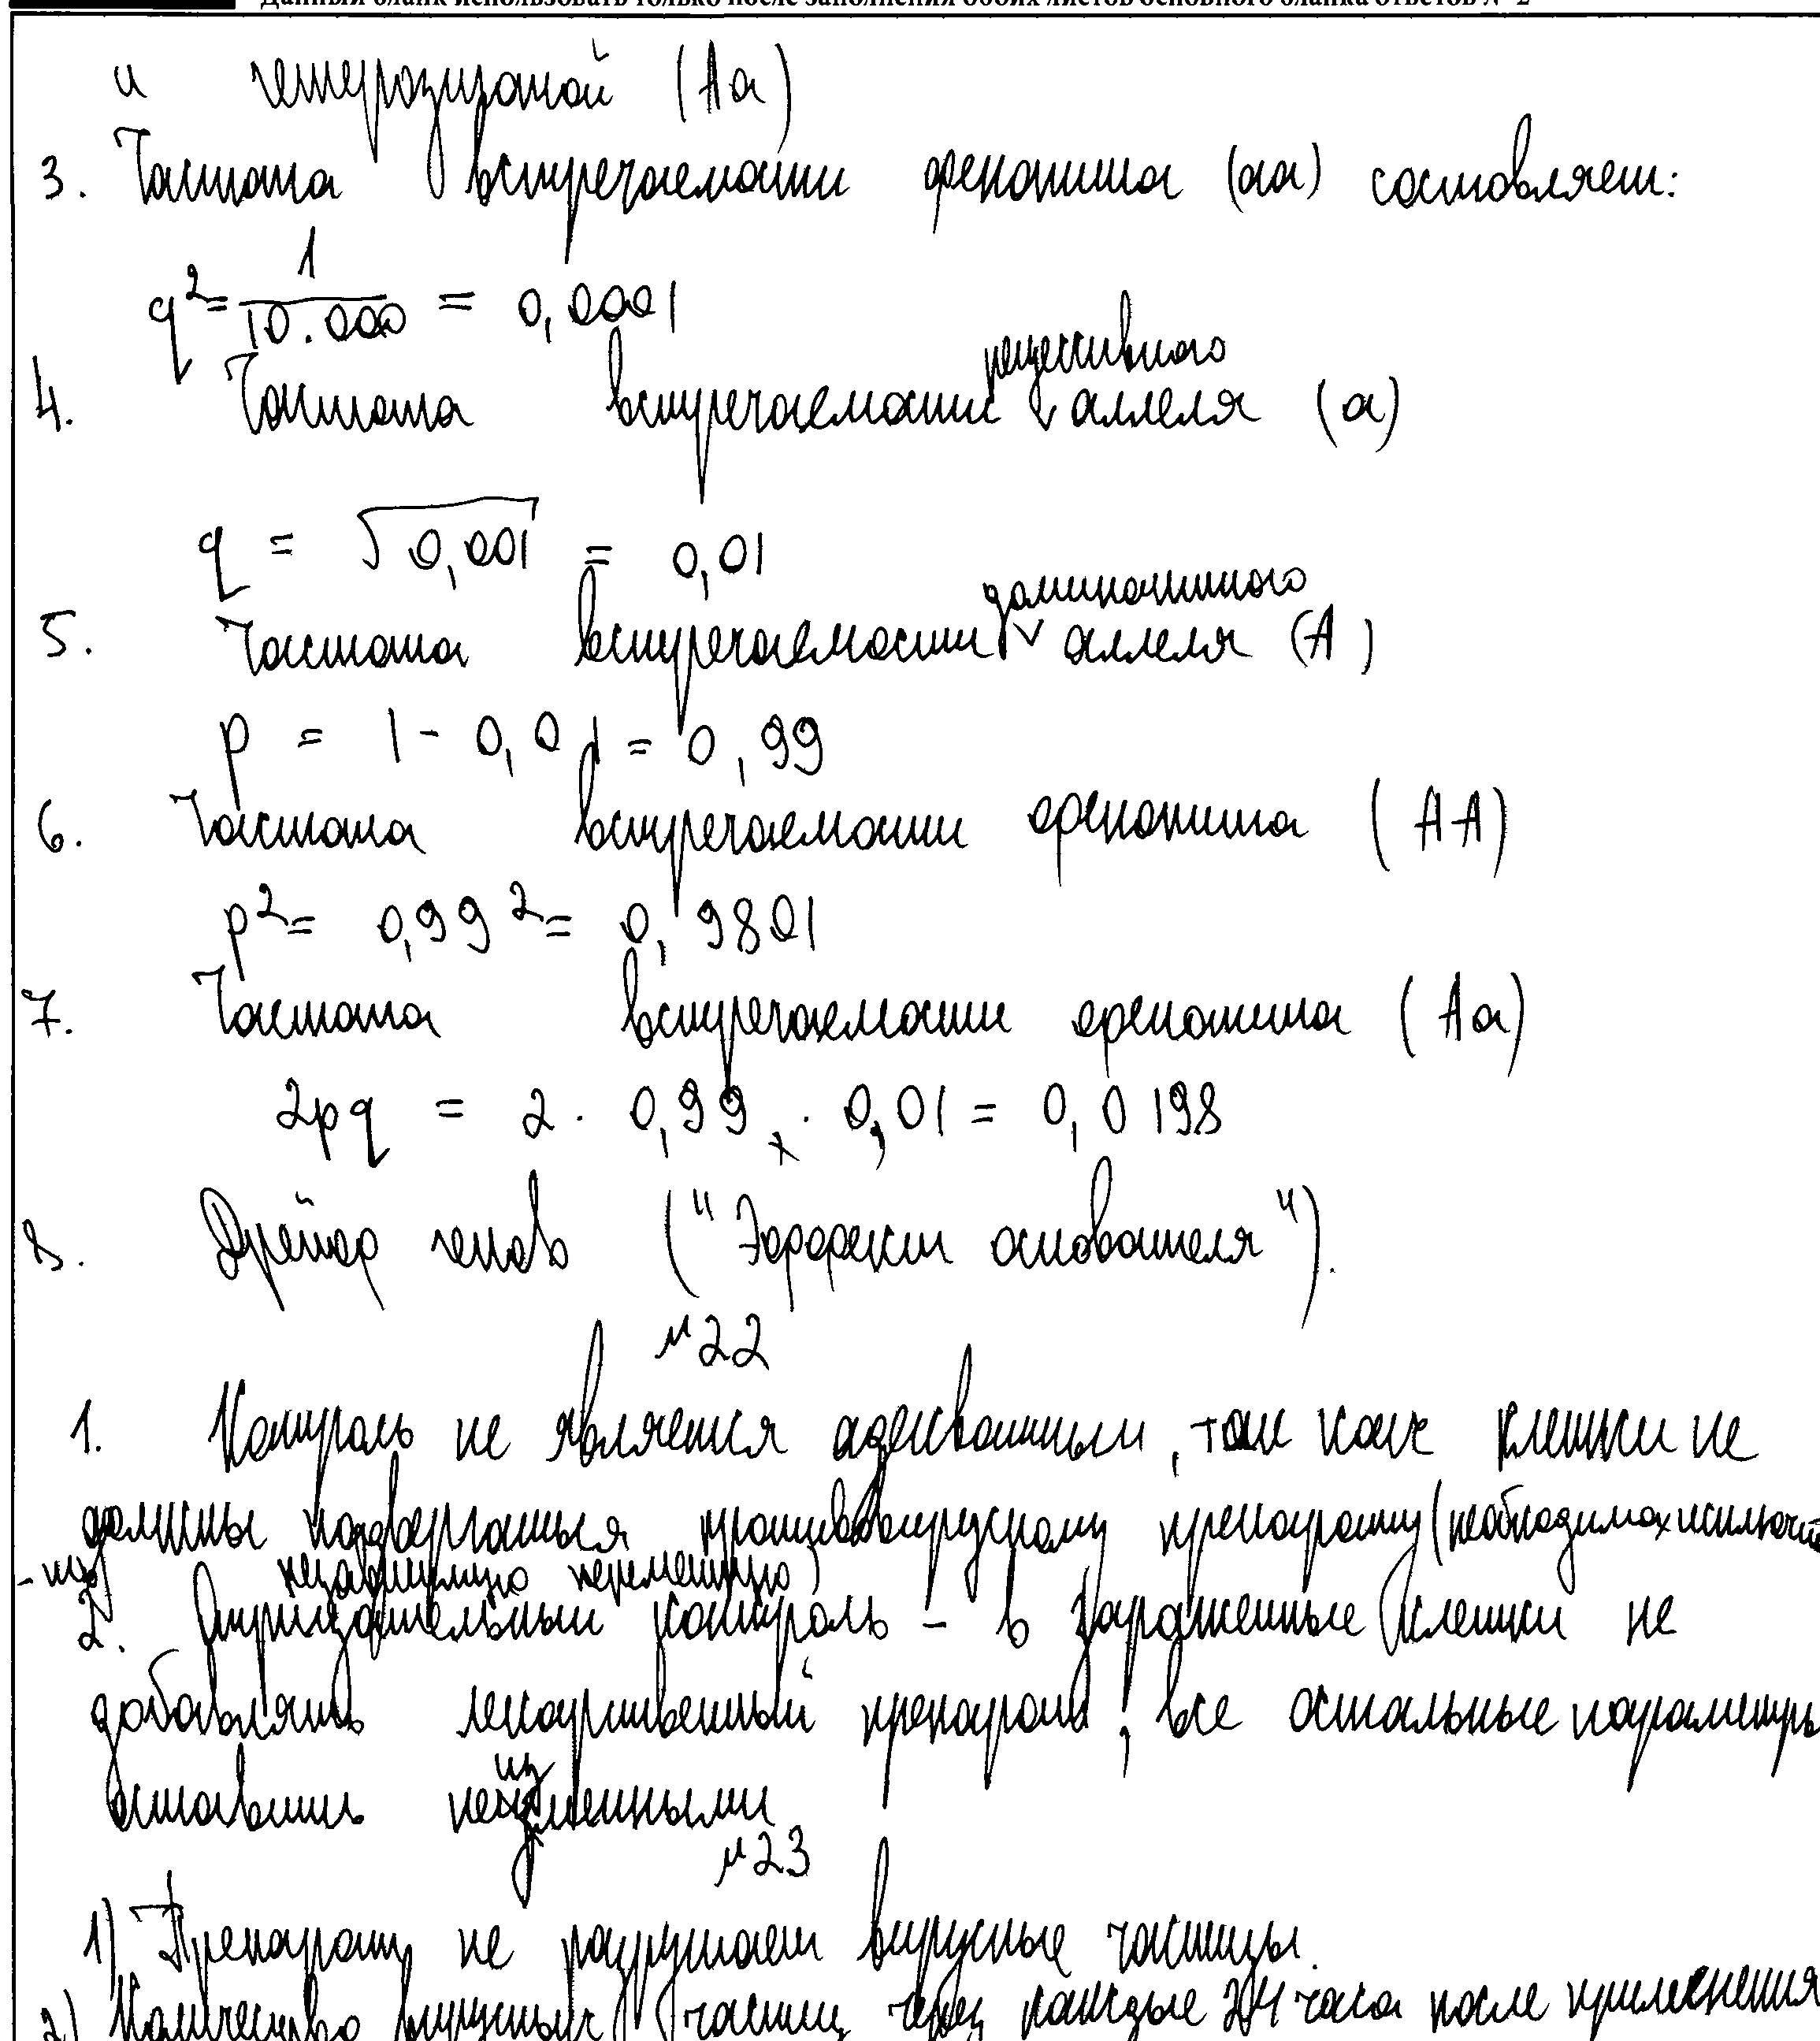 Данный бланк использовать только после заполнения обоих листов основного бланка ответов № 2
и гетерозиготой (Аа)
3. Частота встречаемости фенотипа (аа) составляет:
q² = 1/10.000 = 0,0001
4. Частота встречаемости рецессивного аллеля (а)
q = √0,001 = 0,01
5. Частота встречаемости доминантного аллеля (А)
p = 1 - 0,01 = 0,99
6. Частота встречаемости фенотипа (АА)
p² = 0,99² = 0,9801
7. Частота встречаемости фенотипа (Аа)
2pq = 2 · 0,99 · 0,01 = 0,0198
8. Дрейф генов ("Эффект основателя").
№22
1. Контроль не является адекватным, так как клетки не
должны подвергаться противовирусному препарату (необходимо исключить
независимую переменную)
2. Отрицательный контроль - в зараженные клетки не
добавлять лекарственный препарат, все остальные параметры
оставить неизменными
№23
1) Препарат не разрушает вирусные частицы.
2) Количество вирусных частиц через каждые 24 часа после